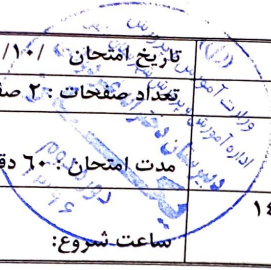 تاریخ امتحان / ۱۰/
تعداد صفحات : ۲ صف
مدت امتحان : ۶۰ دق
۱٤
ساعت شروع:
وزارت آموزش
اداره آموزش
دبیرستان